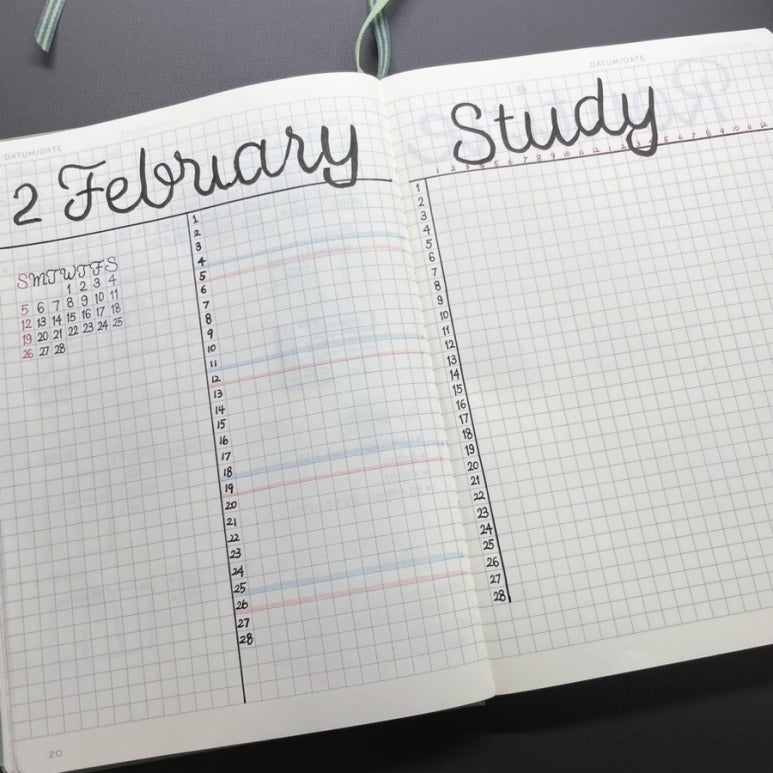 DATUM/DATE
2 February
S M T W T F S
1 2 3 4
5 6 7 8 9 10 11
12 13 14 15 16 17 18
19 20 21 22 23 24 25
26 27 28
1
2
3
4
5
6
7
8
9
10
11
12
13
14
15
16
17
18
19
20
21
22
23
24
25
26
27
28
20
DATUM/DATE
Study
1 2 3 4 5 6 7 8 9 10 11 12 1 2 3 4 5 6 7 8 9 10 11 12
1
2
3
4
5
6
7
8
9
10
11
12
13
14
15
16
17
18
19
20
21
22
23
24
25
26
27
28